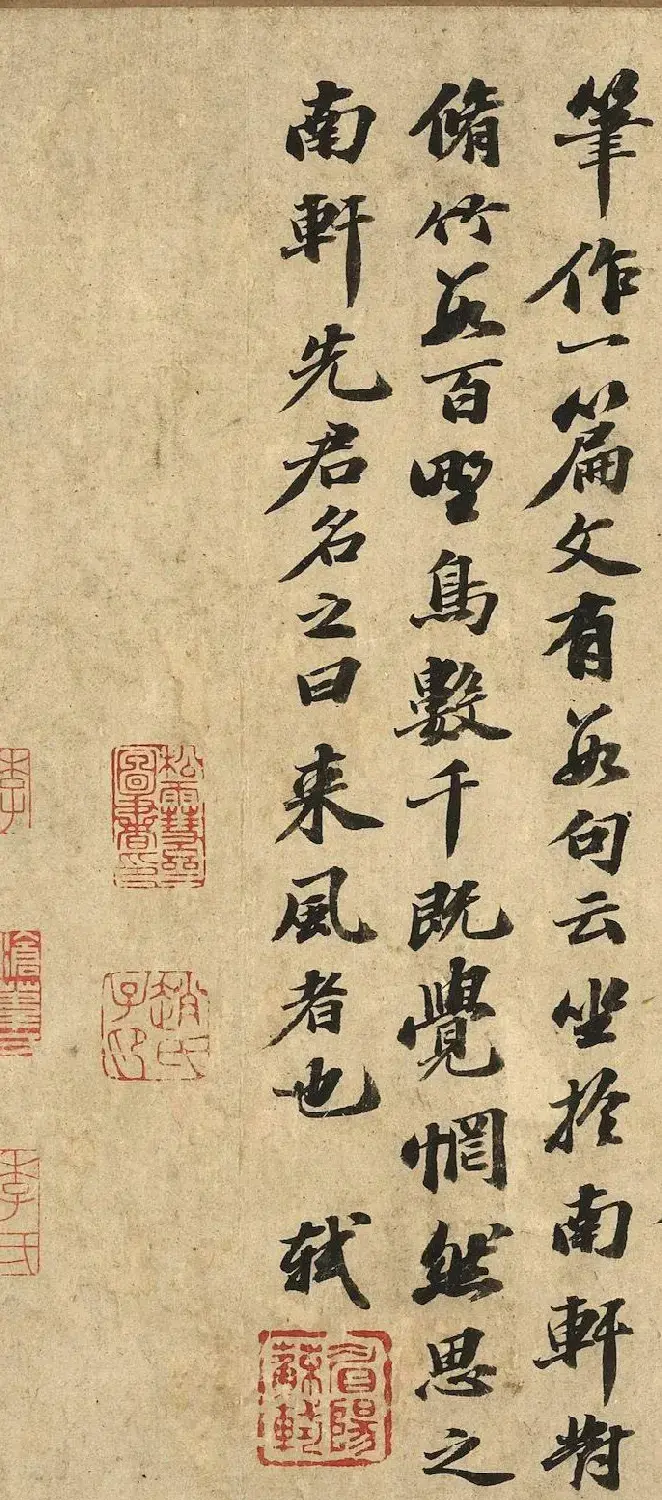 筆作一篇文有数句云坐扵南軒對
脩竹数百野鳥數千既覺惘然思之
南軒先君名之曰来風者也 軾
眉陽蘇軾
松雪齋圖書印
趙氏子印
李
李氏